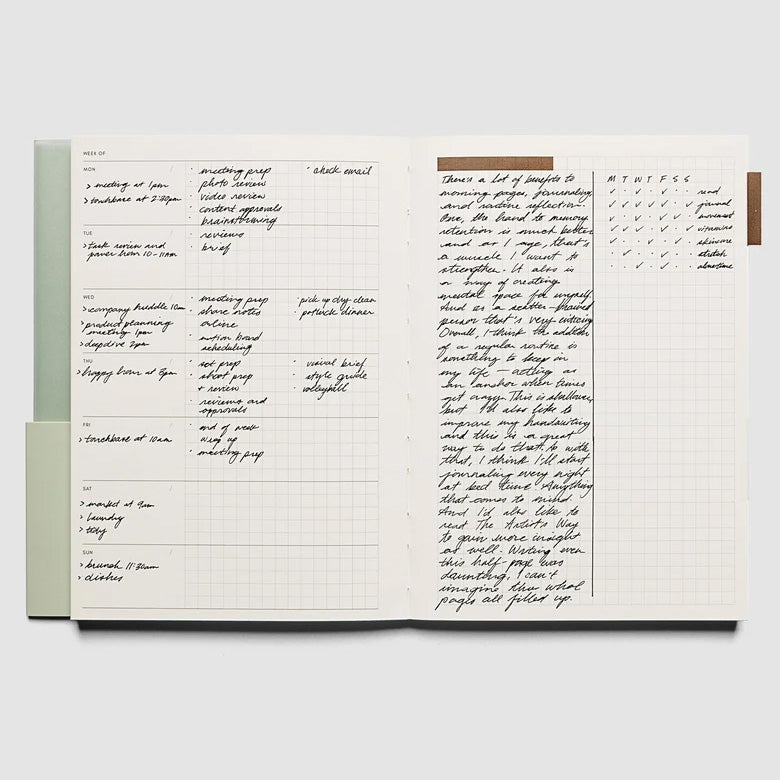 WEEK OF
MON /
> meeting at 1pm
> touchbase at 2:30pm
· meeting prep
· photo review
· video review
· content approvals
· brainstorming
· check email
TUE /
> task review and
power hour 10-11AM
· reviews
· brief
WED /
> company huddle 10am
> product planning
meeting 1pm
> deepdive 2pm
· meeting prep
· share notes
online
· motion board
scheduling
· pick up dry-clean
· potluck dinner
THU /
> happy hour at 5pm
· set prep
· shoot prep
+ review
· reviews and
approvals
· visual brief
· style guide
· volleyball
FRI /
> touchbase at 10am
· end of week
wrap up
· meeting prep
SAT /
> market at 9am
> laundry
> tidy
SUN /
> brunch 11:30am
> dishes
There's a lot of benefits to
morning pages, journaling,
and routine reflection.
One, the hand to memory
retention is much better
and as I age, that's
a muscle I want to
strengthen. It also is
a way of creating
mental space for myself.
And as a scatter-brained
person that's very enticing.
Overall, I think the addition
of a regular routine is
something to keep in
my life — acting as
an anchor when times
get crazy. This is shallower,
but I'd also like to
improve my handwriting
and this is a great
way to do that. So with
that, I think I'll start
journaling every night
at bed time. Anything
that comes to mind.
And I'd also like to
read The Artist's Way
to gain more insight
as well. Writing even
this half-page was
daunting, I can't
imagine three whole
pages all filled up.
M T W T F S S
✓ · ✓ · ✓ · · read
✓ ✓ · ✓ · · ✓ journal
✓ · ✓ · ✓ · ✓ movement
✓ ✓ ✓ ✓ ✓ · ✓ vitamins
✓ · ✓ · ✓ · · skincare
· ✓ · ✓ · · · stretch
· · ✓ · ✓ · · alonetime